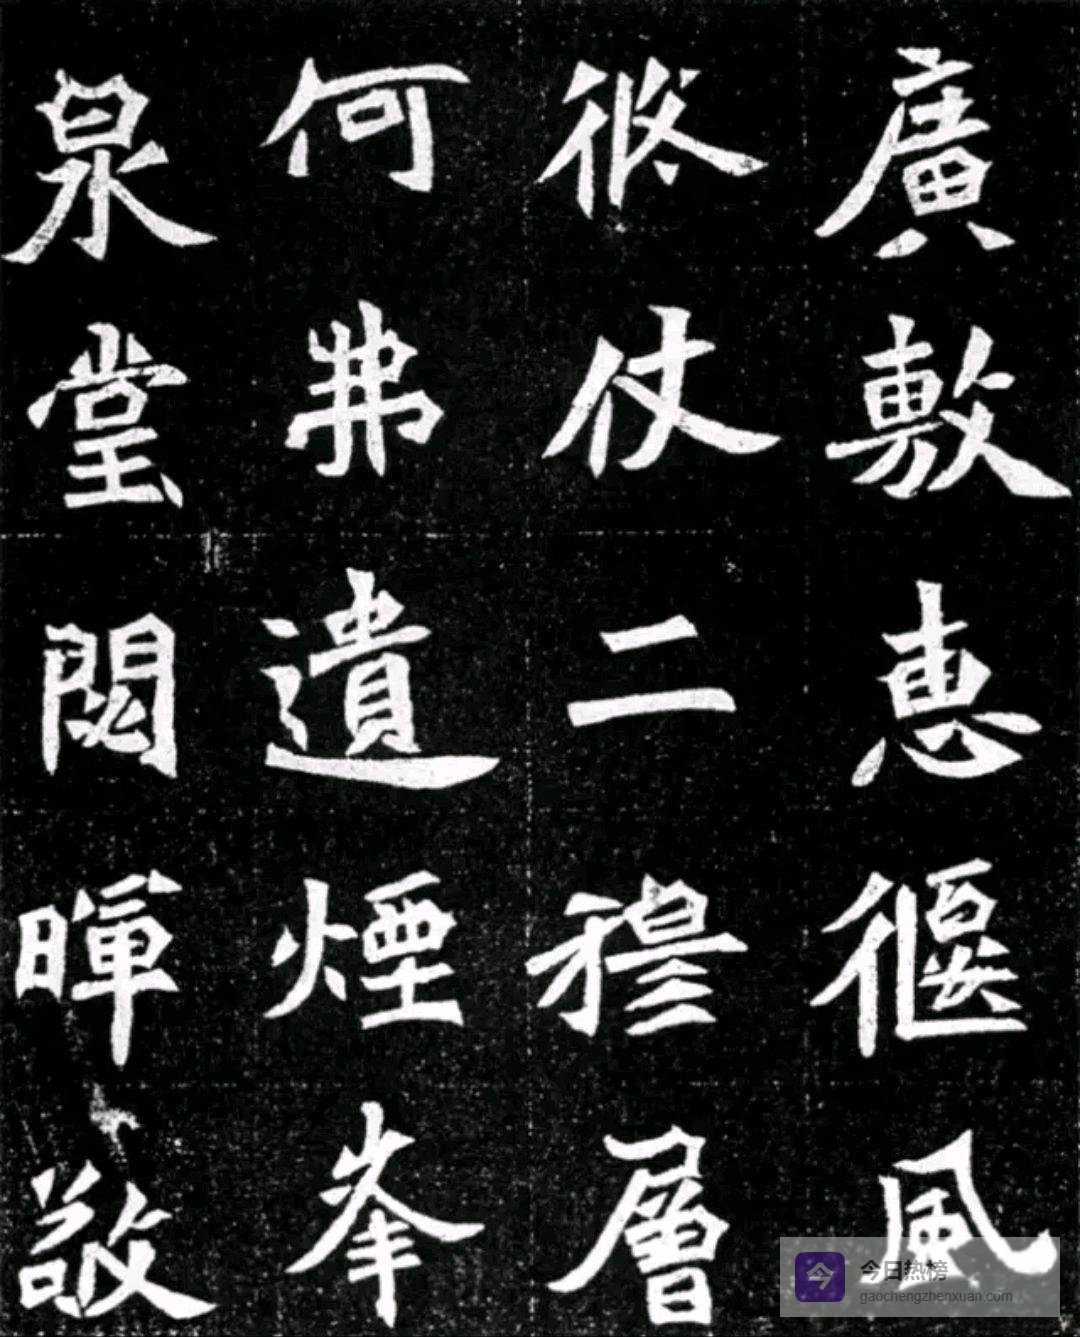 廣敷惠偃風
脩仗二穆層
何弗遺煙峯
泉堂闕暉敬
今
今日热榜
gaochengzhenxuan.com